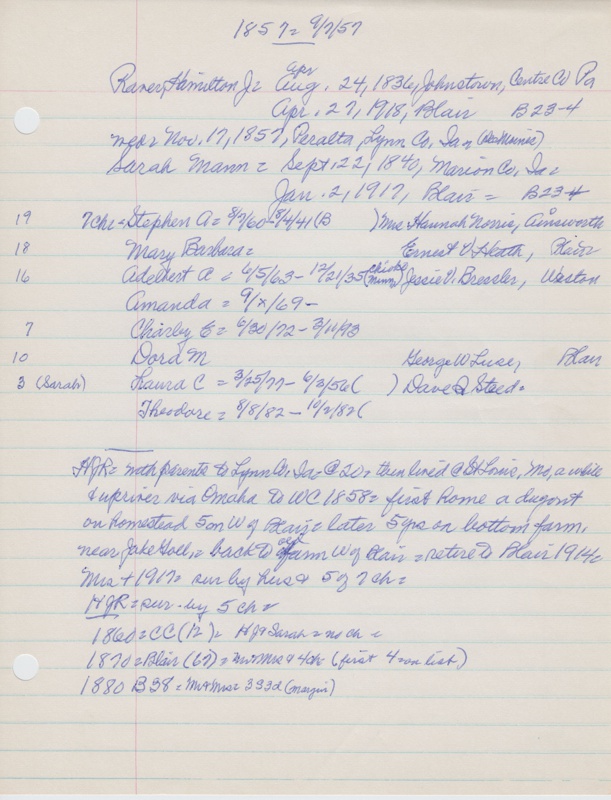 1857 = 9/7/57
Raver, Hamilton Jr = Apr Aug. 24, 1836, Johnstown, Centre Co Pa
Apr. 27, 1918, Blair B23-4
m = Nov. 17, 1857, Peralta, Lynn Co, Ia =
Sarah Mann = Sept. 22, 1840, Marion Co, Ia =
Jan. 2, 1917, Blair = B23-4
19 7 ch = Stephen A = 8/7/60 - 8/4/41 (B ) Mrs Hannah Norris, Ainsworth
18 Mary Barbara = Ernest V Heath, Blair
16 Adelbert A = 6/5/63 - 12/21/35 Jessie V. Bressler, Weston
Amanda = 9/x/69 -
7 Charley E = 6/30/72 - 3/11/93
10 Dora M George W Luse, Blair
3 (Sarah) Laura C = 3/25/77 - 6/3/56 ( ) Dave Steed =
Theodore = 8/8/82 - 10/2/82 (
HJR = with parents to Lynn Co, Ia @ 20 = then lived @ St Louis, Mo, a while
& upriver via Omaha to WC 1858 = first home a dugout
on homestead 5m W of Blair = later 5 yrs on bottom farm,
near Jake Goll, = back to old farm W of Blair = retire to Blair 1914 =
Mrs + 1917 = sur by hus & 5 of 7 ch =
HJR = sur. by 5 ch =
1860 = CC (12) = HJ & Sarah = no ch =
1870 = Blair (67) = Mr & Mrs & 4 ch (first 4 on list)
1880 B38 = Mr & Mrs = 393d (margin)